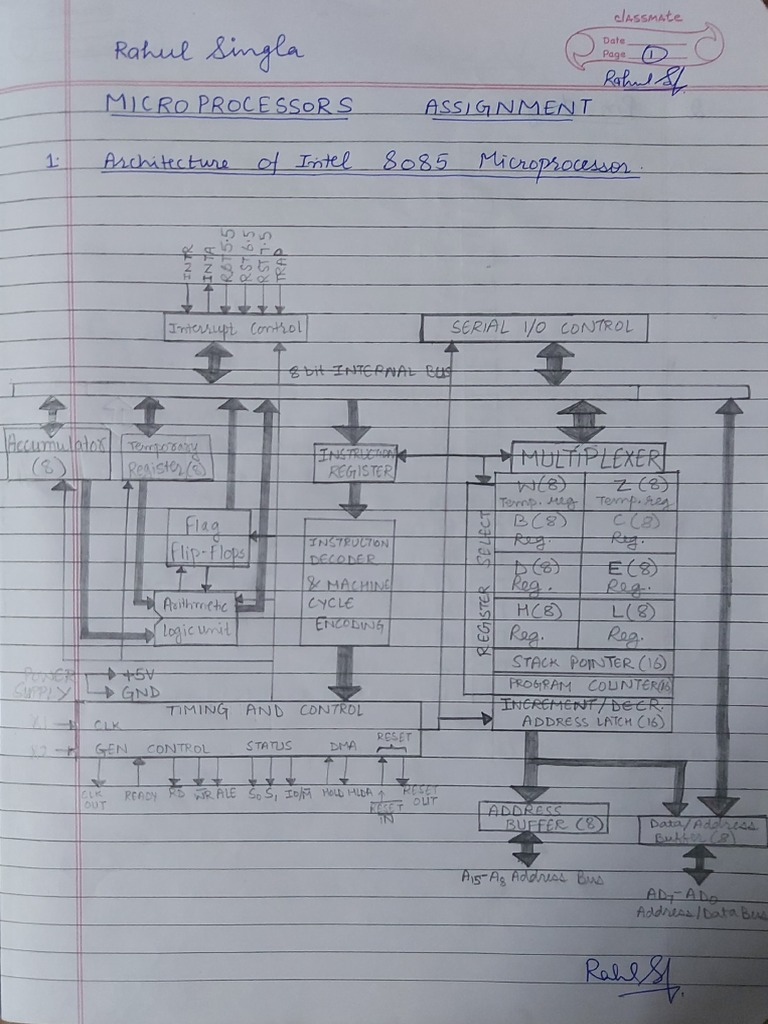 classmate
Date
Page 1
Rahul Singla
MICROPROCESSORS ASSIGNMENT
1. Architecture of Intel 8085 Microprocessor.
INTR
INTA
RST 5.5
RST 6.5
RST 7.5
TRAP
Interrupt Control
SERIAL I/O CONTROL
8 bit INTERNAL BUS
Accumulator
(8)
Temporary
Register (8)
INSTRUCTION
REGISTER
MULTIPLEXER
W(8)
Temp. reg
Z(8)
Temp. reg
B(8)
Reg.
C(8)
Reg.
D(8)
Reg.
E(8)
Reg.
H(8)
Reg.
L(8)
Reg.
REGISTER SELECT
STACK POINTER (16)
PROGRAM COUNTER(16)
INCREMENT/DECR.
ADDRESS LATCH (16)
Flag
Flip-Flops
Arithmetic
Logic unit
INSTRUCTION
DECODER
& MACHINE
CYCLE
ENCODING
POWER
SUPPLY
+5V
GND
TIMING AND CONTROL
X1
CLK
X2
GEN CONTROL STATUS DMA RESET
CLK
OUT
READY
RD
WR
ALE
S0
S1
IO/M
HOLD
HLDA
RESET
IN
RESET
OUT
ADDRESS
BUFFER (8)
Data/Address
Buffer (8)
A15-A8 Address Bus
AD7-AD0
Address/Data Bus